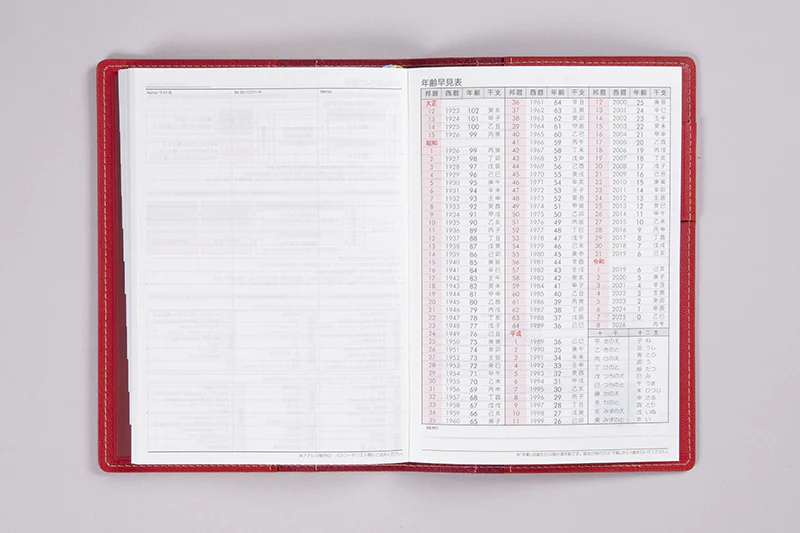 Name/サイト名 Tel・ID・パスワード Memo
※アドレス帳やID・パスワードリスト等にご活用ください。
年齢早見表
邦暦 西暦 年齢 干支 邦暦 西暦 年齢 干支 邦暦 西暦 年齢 干支
大正 36 1961 64 辛丑 12 2000 25 庚辰
12 1923 102 癸亥 37 1962 63 壬寅 13 2001 24 辛巳
13 1924 101 甲子 38 1963 62 癸卯 14 2002 23 壬午
14 1925 100 乙丑 39 1964 61 甲辰 15 2003 22 癸未
15 1926 99 丙寅 40 1965 60 乙巳 16 2004 21 甲申
昭和 41 1966 59 丙午 17 2005 20 乙酉
1 1926 99 丙寅 42 1967 58 丁未 18 2006 19 丙戌
2 1927 98 丁卯 43 1968 57 戊申 19 2007 18 丁亥
3 1928 97 戊辰 44 1969 56 己酉 20 2008 17 戊子
4 1929 96 己巳 45 1970 55 庚戌 21 2009 16 己丑
5 1930 95 庚午 46 1971 54 辛亥 22 2010 15 庚寅
6 1931 94 辛未 47 1972 53 壬子 23 2011 14 辛卯
7 1932 93 壬申 48 1973 52 癸丑 24 2012 13 壬辰
8 1933 92 癸酉 49 1974 51 甲寅 25 2013 12 癸巳
9 1934 91 甲戌 50 1975 50 乙卯 26 2014 11 甲午
10 1935 90 乙亥 51 1976 49 丙辰 27 2015 10 乙未
11 1936 89 丙子 52 1977 48 丁巳 28 2016 9 丙申
12 1937 88 丁丑 53 1978 47 戊午 29 2017 8 丁酉
13 1938 87 戊寅 54 1979 46 己未 30 2018 7 戊戌
14 1939 86 己卯 55 1980 45 庚申 31 2019 6 己亥
15 1940 85 庚辰 56 1981 44 辛酉 令和
16 1941 84 辛巳 57 1982 43 壬戌 1 2019 6 己亥
17 1942 83 壬午 58 1983 42 癸亥 2 2020 5 庚子
18 1943 82 癸未 59 1984 41 甲子 3 2021 4 辛丑
19 1944 81 甲申 60 1985 40 乙丑 4 2022 3 壬寅
20 1945 80 乙酉 61 1986 39 丙寅 5 2023 2 癸卯
21 1946 79 丙戌 62 1987 38 丁卯 6 2024 1 甲辰
22 1947 78 丁亥 63 1988 37 戊辰 7 2025 0 乙巳
23 1948 77 戊子 64 1989 36 己巳 8 2026 丙午
24 1949 76 己丑 平成 十干 十二支
25 1950 75 庚寅 1 1989 36 己巳 甲 きのえ 子 ね
26 1951 74 辛卯 2 1990 35 庚午 乙 きのと 丑 うし
27 1952 73 壬辰 3 1991 34 辛未 丙 ひのえ 寅 とら
28 1953 72 癸巳 4 1992 33 壬申 丁 ひのと 卯 う
29 1954 71 甲午 5 1993 32 癸酉 戊 つちのえ 辰 たつ
30 1955 70 乙未 6 1994 31 甲戌 己 つちのと 巳 み
31 1956 69 丙申 7 1995 30 乙亥 庚 かのえ 午 うま
32 1957 68 丁酉 8 1996 29 丙子 辛 かのと 未 ひつじ
33 1958 67 戊戌 9 1997 28 丁丑 壬 みずのえ 申 さる
34 1959 66 己亥 10 1998 27 戊寅 癸 みずのと 酉 とり
35 1960 65 庚子 11 1999 26 己卯 戌 いぬ
亥 い
MEMO